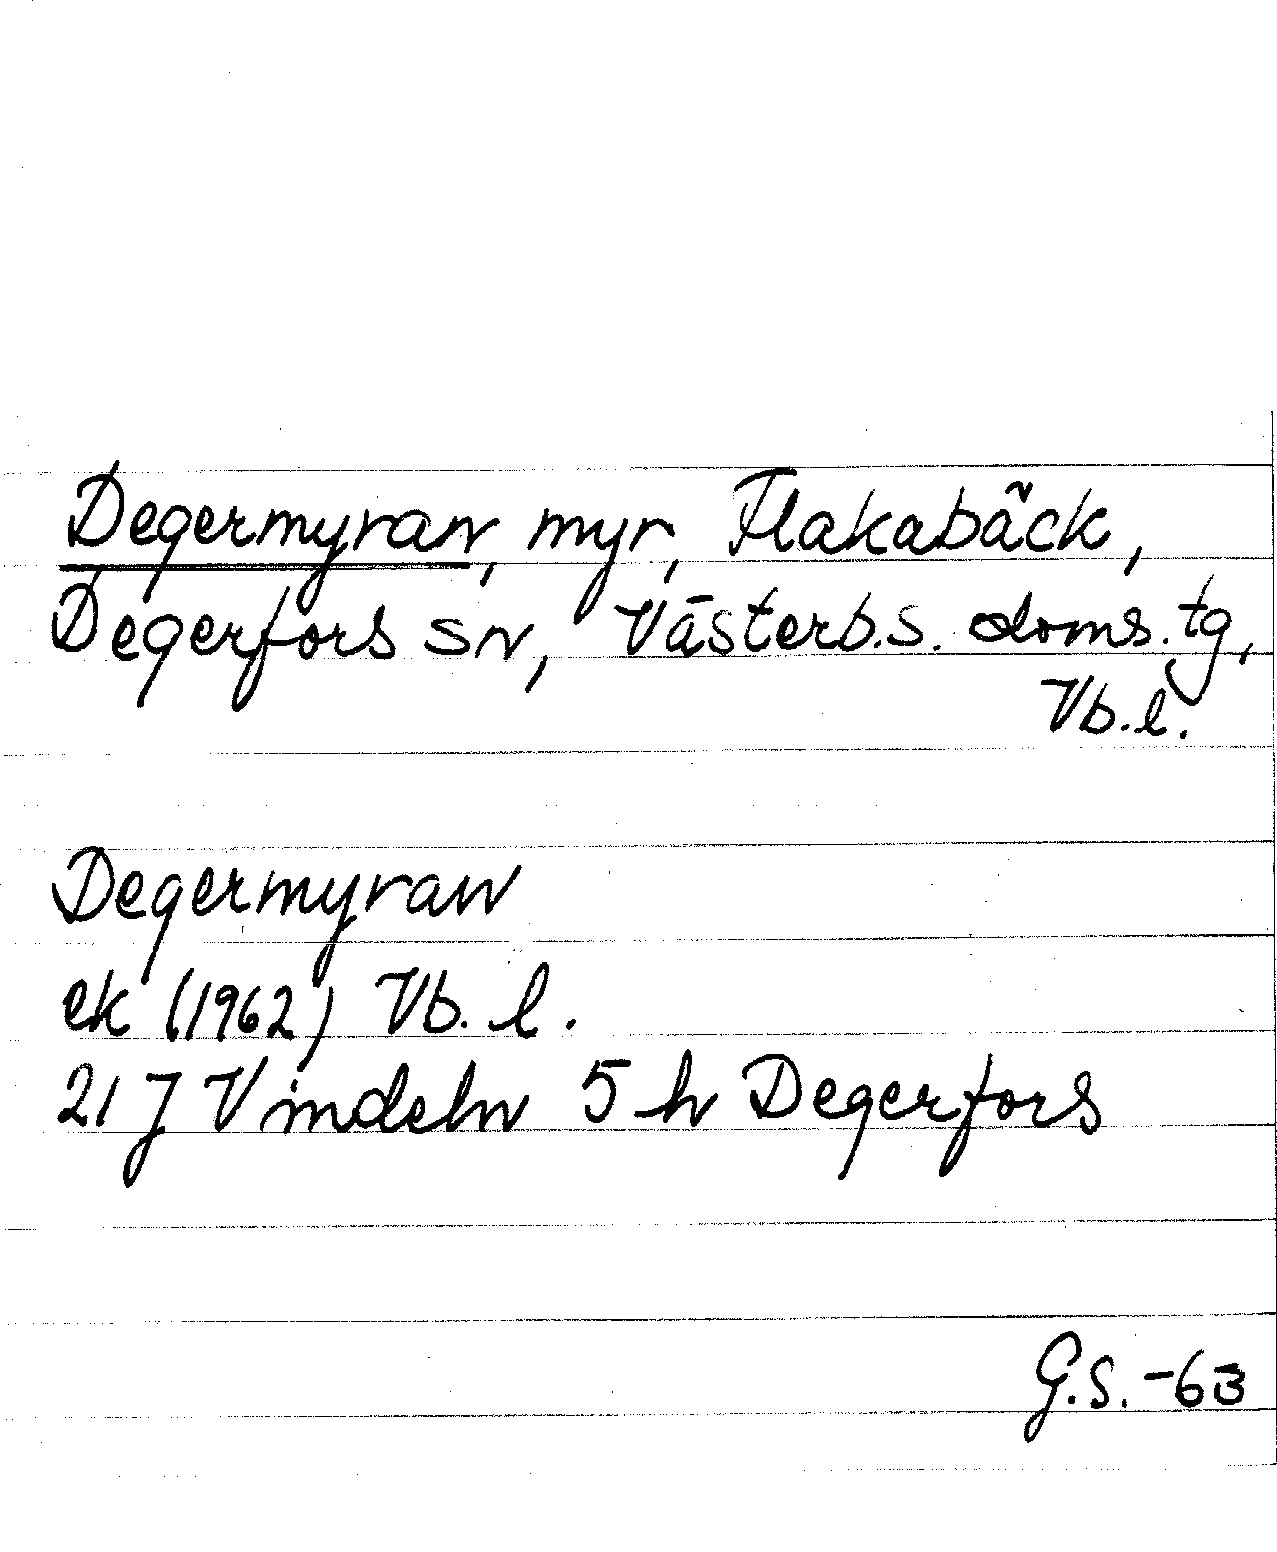 Degermyran, myr, Flakabäck,
Degerfors sn, Västerb.s. doms.tg,
Vb.l.
Degermyran
ek (1962) Vb.l.
21 J Vindeln 5 h Degerfors
G.S.-63